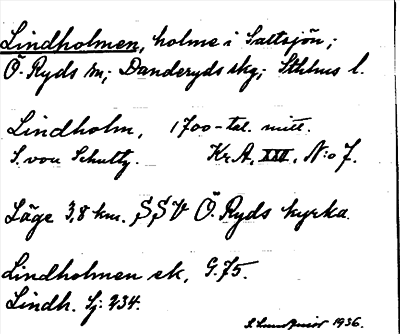 Lindholmen, holme i Saltsjön;
Ö. Ryds sn; Danderyds skg; Sthlms l.
Lindholm, 1700-tal. mitt.
S. von Schultz. Kr.A. XXX, N:o 7.
Läge 3,8 km. SSV Ö. Ryds kyrka.
Lindholmen ek. G.75.
Lindh. Sj: 234.
1936.